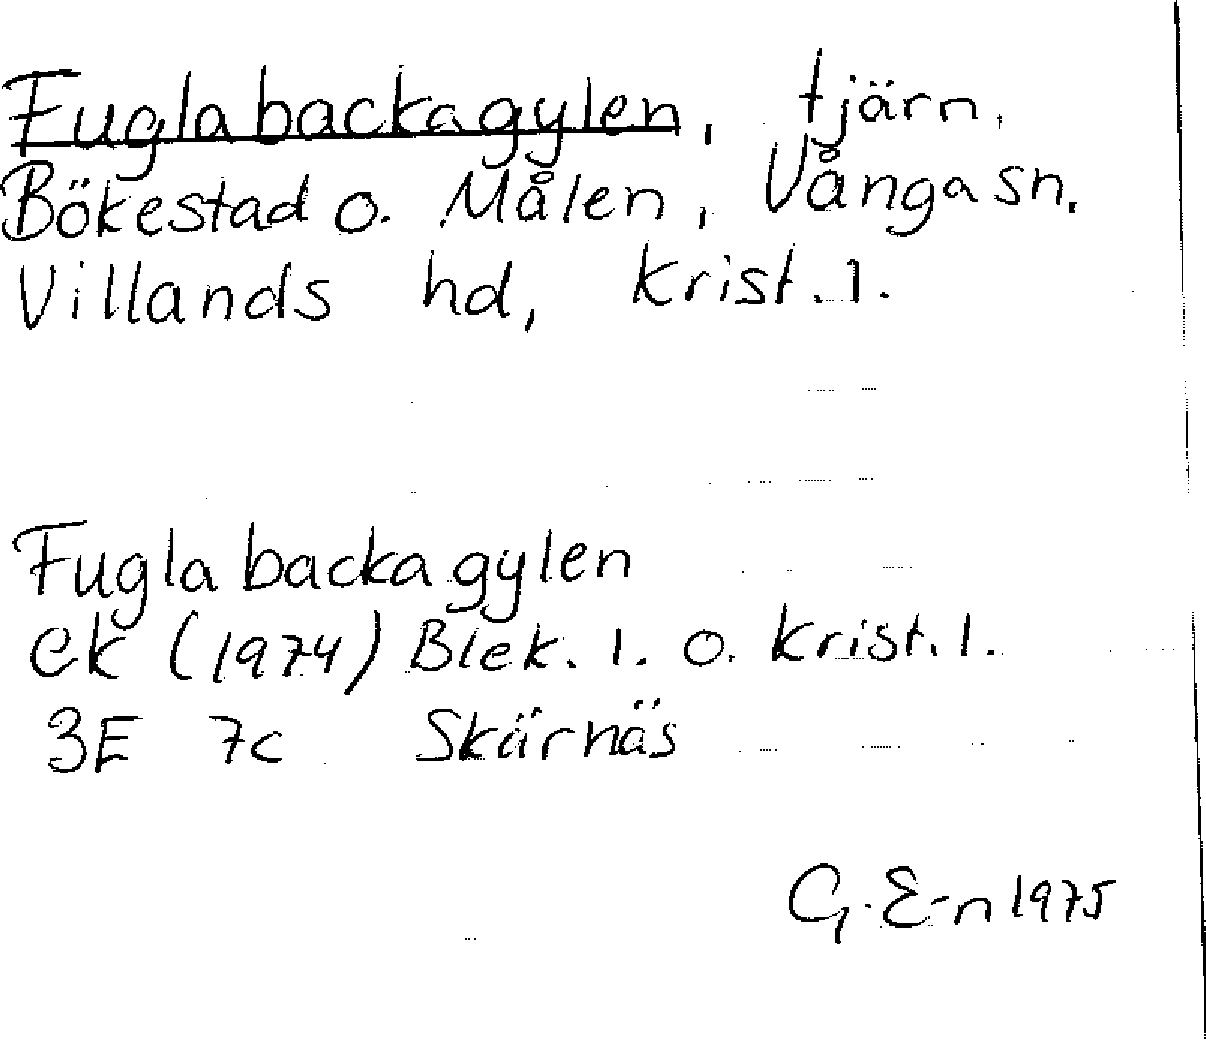 Fuglabackagylen, tjärn.
Bökestad o. Målen, Vånga sn.
Villands hd, Krist. l.
Fuglabackagylen
ek (1974) Blek. l. o. Krist. l.
3E 7c Skärnäs
G. E-n 1975